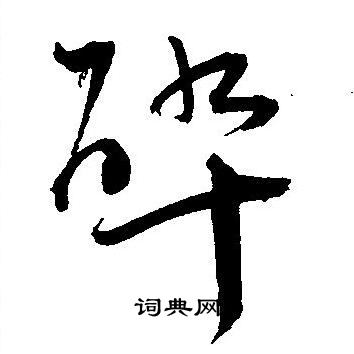 碎
词典网